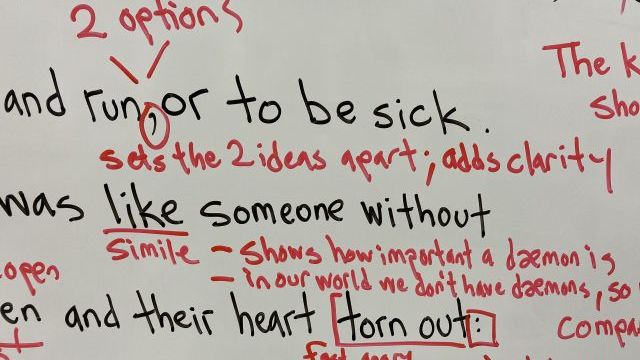 2 options
The k
and run, or to be sick.
sho
sets the 2 ideas apart; adds clarity
was like someone without
simile – shows how important a dæmon is
open – in our world we don't have dæmons, so
en and their heart torn out:
compa